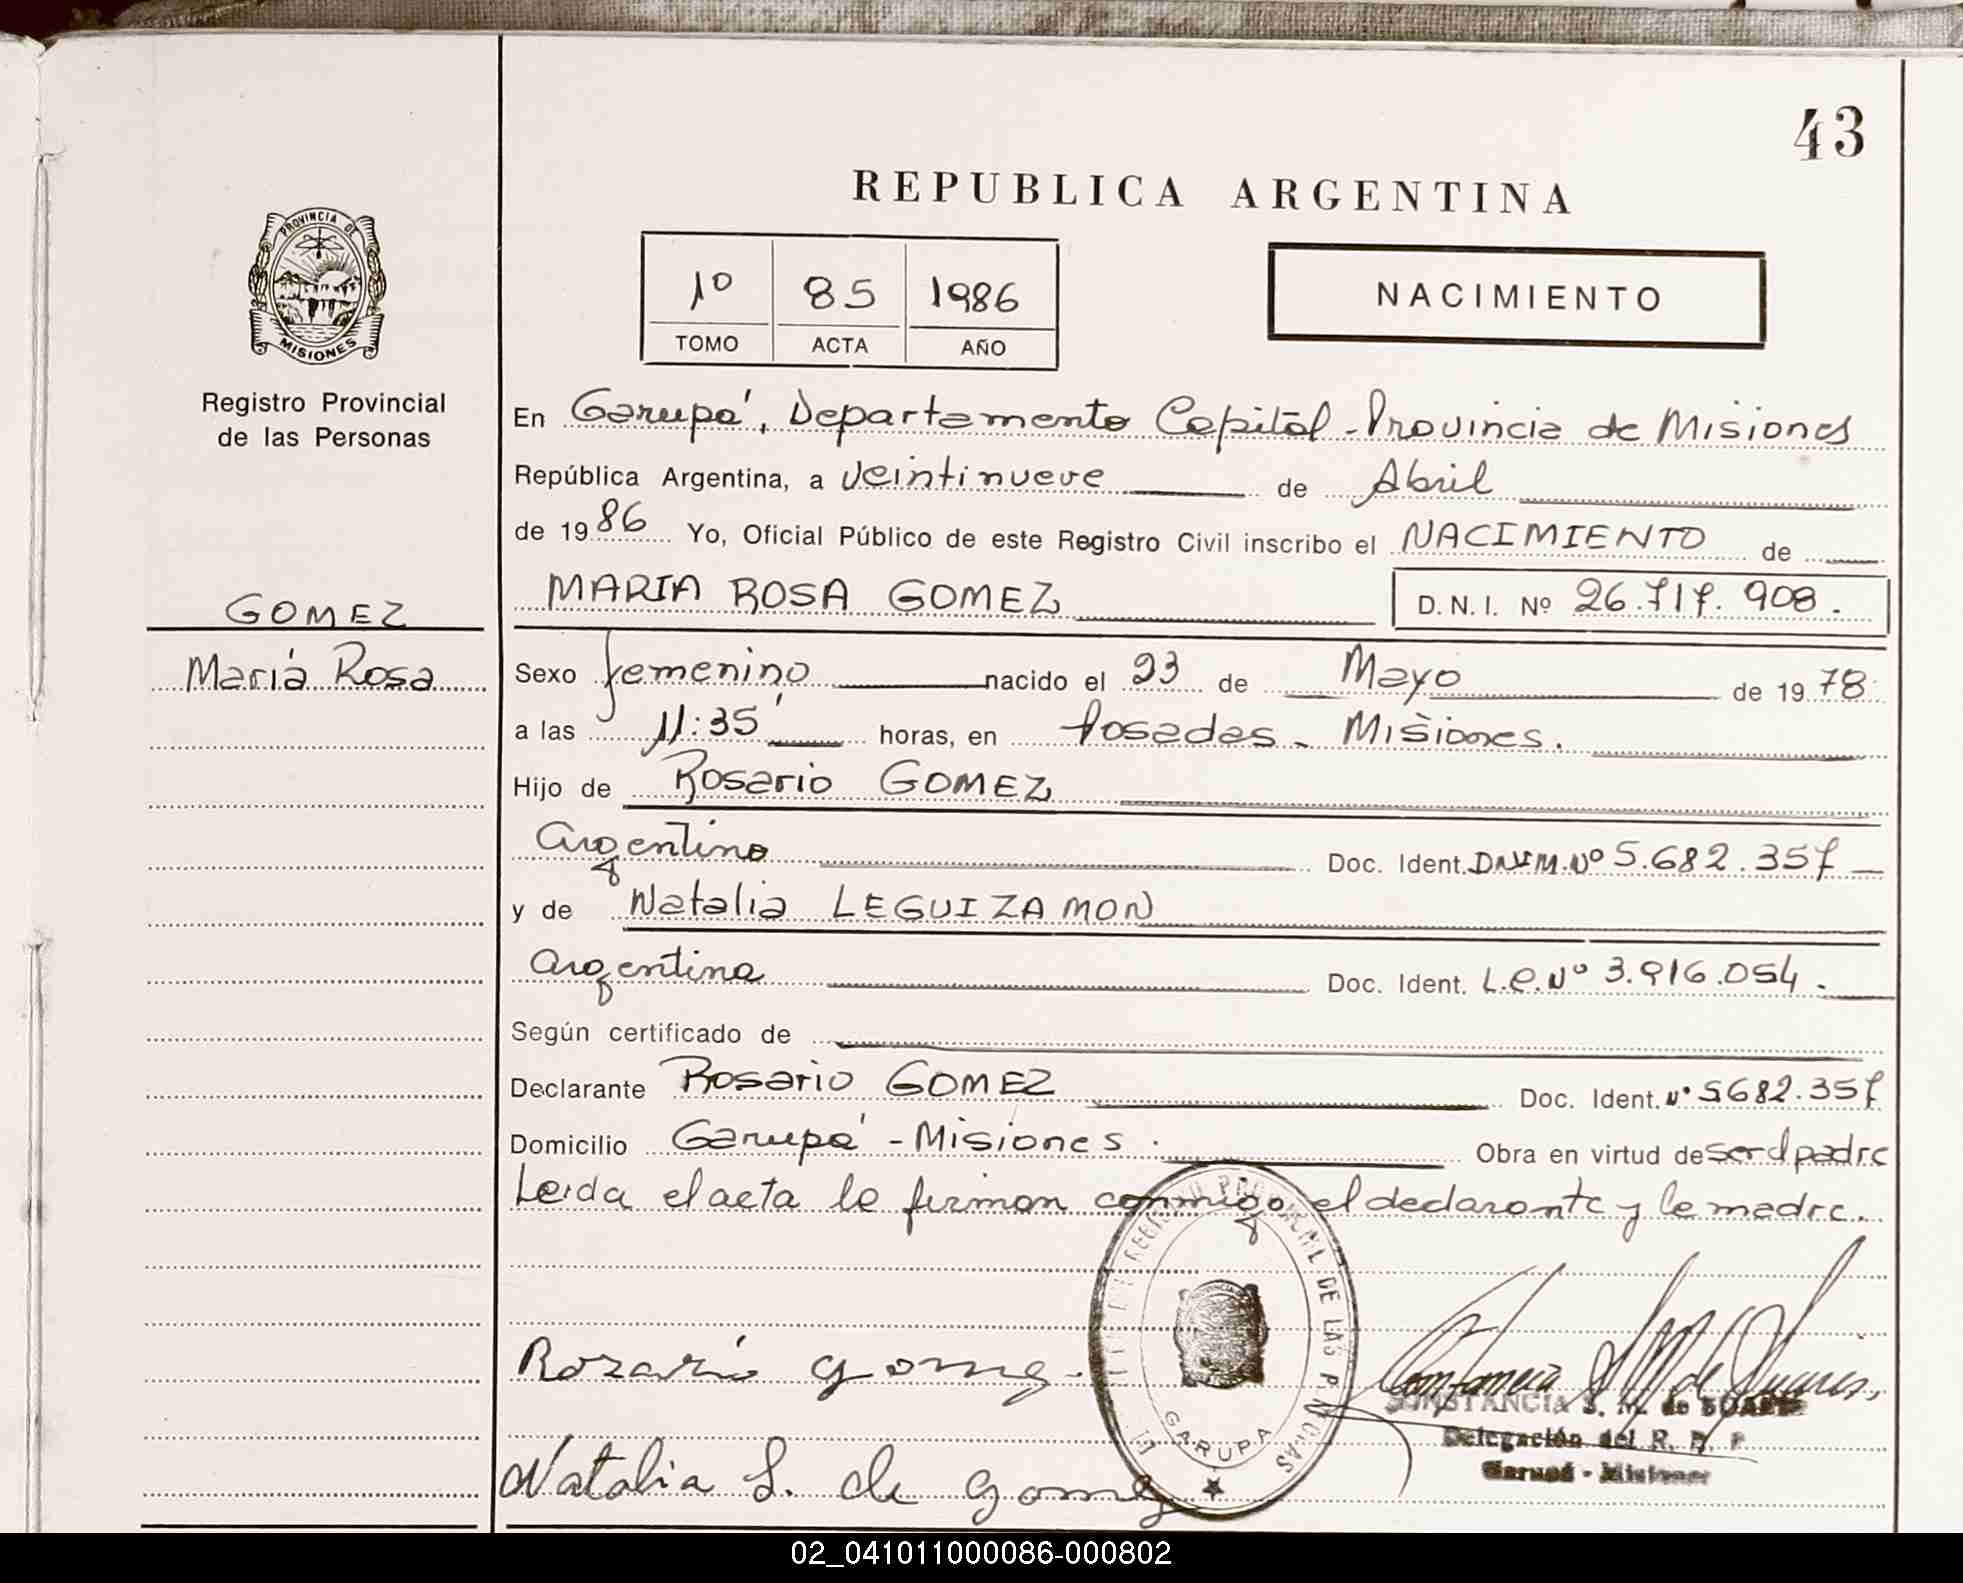 43
REPUBLICA ARGENTINA
PROVINCIA DE
MISIONES
1º 85 1986
TOMO ACTA AÑO
NACIMIENTO
Registro Provincial
de las Personas
GOMEZ
Maria Rosa
En Garupá, Departamento Capital - Provincia de Misiones
República Argentina, a veintinueve de Abril
de 1986 Yo, Oficial Público de este Registro Civil inscribo el NACIMIENTO de
MARIA ROSA GOMEZ D.N.I. Nº 26.717.908.
Sexo femenino nacido el 23 de Mayo de 1978
a las 11:35' horas, en Posadas - Misiones.
Hijo de Rosario GOMEZ
argentino Doc. Ident. Nº 5.682.357
y de Natalia LEGUIZAMON
argentina Doc. Ident. L.C. Nº 3.916.054.
Según certificado de
Declarante Rosario GOMEZ Doc. Ident. Nº 5682.357
Domicilio Garupá - Misiones. Obra en virtud de ser el padre
Leida el acta la firman conmigo el declarante y la madre.
REGISTRO PROVINCIAL DE LAS PERSONAS
GARUPA
Rozario gomez.
Natalia L. de gomez
Constancia S. M. de Suares
CONSTANCIA S. M. de SUARES
Delegación del R. P. P.
Garupá - Misiones
02_041011000086-000802